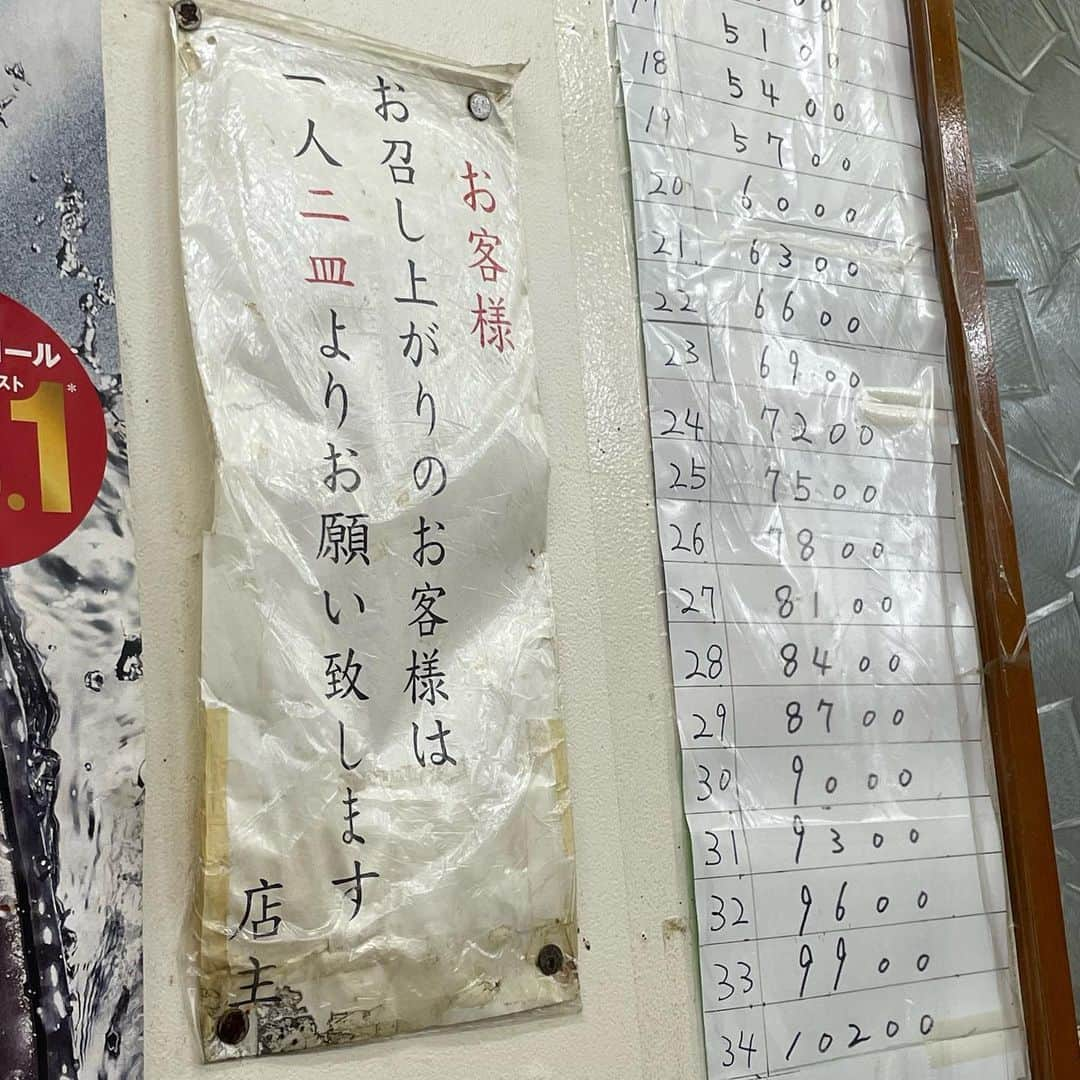 お客様
お召し上がりのお客様は
一人二皿よりお願い致します
店主
ール
スト
.1*
18 5400
19 5700
20 6000
21 6300
22 6600
23 6900
24 7200
25 7500
26 7800
27 8100
28 8400
29 8700
30 9000
31 9300
32 9600
33 9900
34 10200